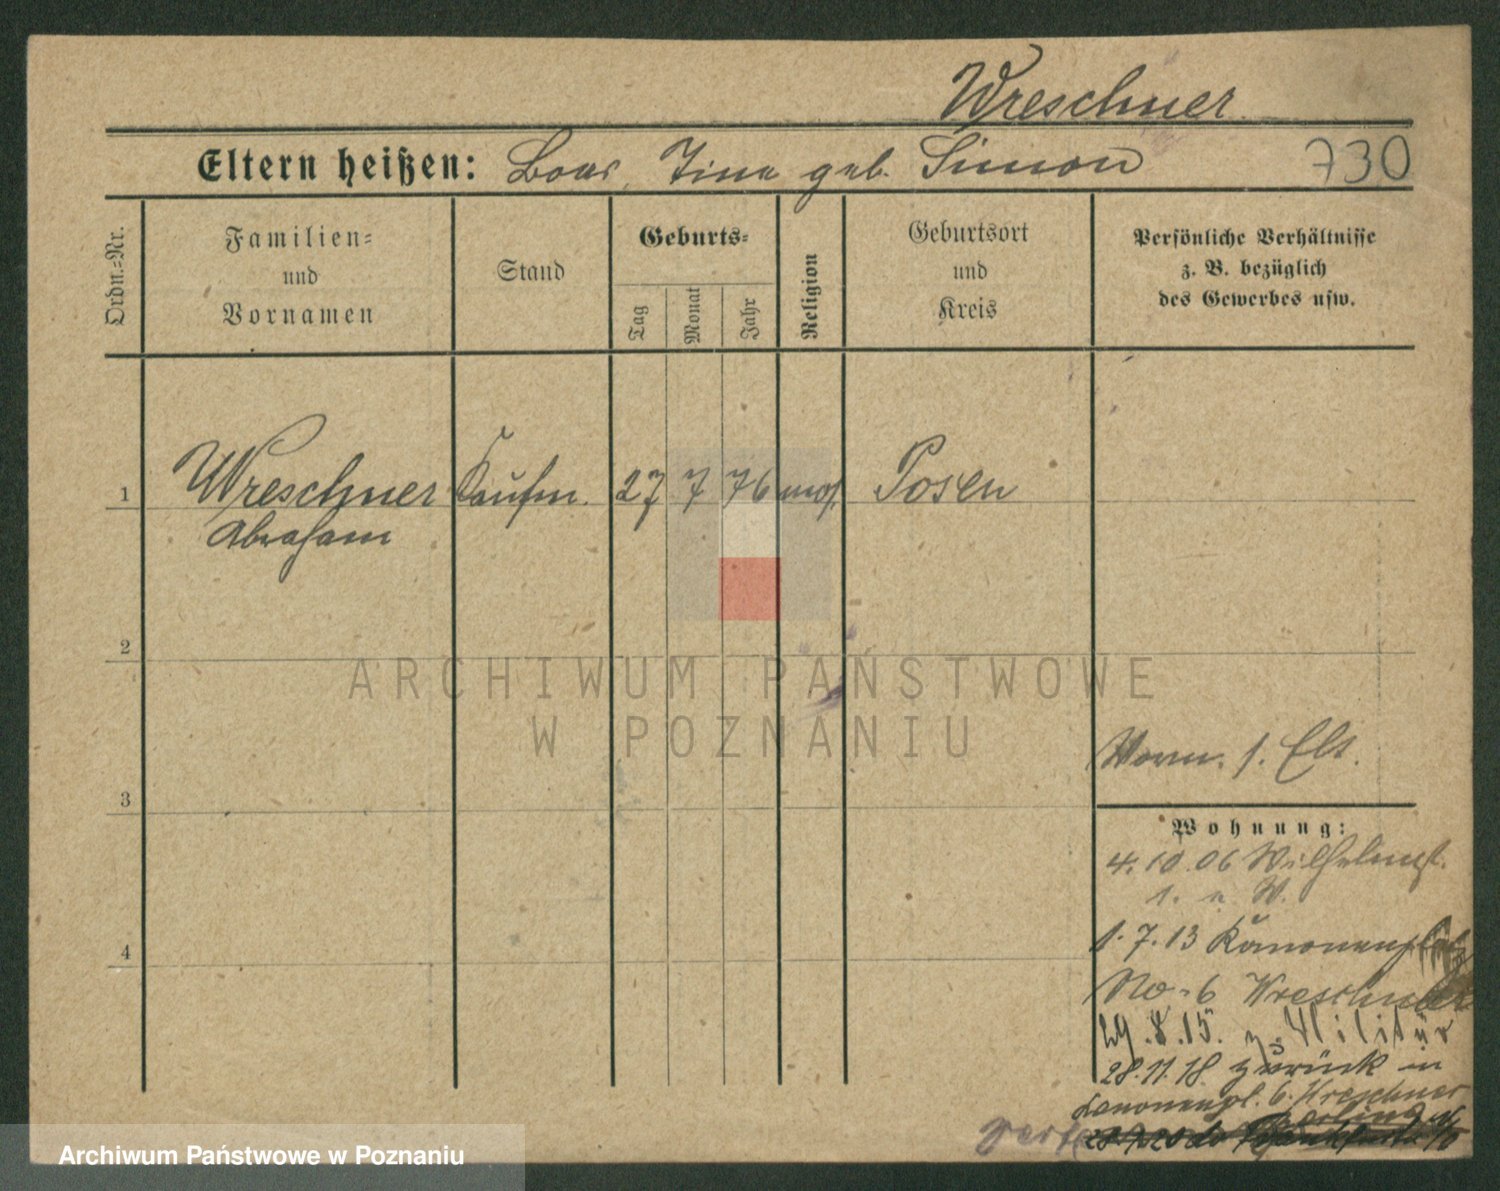 Wreschner
Eltern heißen: Boas, Tina geb. Simon 730
Ordn.-Nr.
Familien-
und
Vornamen
Stand
Geburts-
Tag
Monat
Jahr
Religion
Geburtsort
und
Kreis
Persönliche Verhältnisse
z. B. bezüglich
des Gewerbes usw.
1 Wreschner Kaufm. 27 7 76 mos. Posen
Abraham
2
ARCHIWUM PAŃSTWOWE
W POZNANIU
Elt.
3
Wohnung:
4. 10. 06 Wilhelmst.
1. W.
1. 7. 13 Kanonenplatz
4
No. 6 Wreschner
29. 8. 15. z. Militär
28. 11. 18. zurück in
Kanonenpl. 6. Wreschner
Archiwum Państwowe w Poznaniu